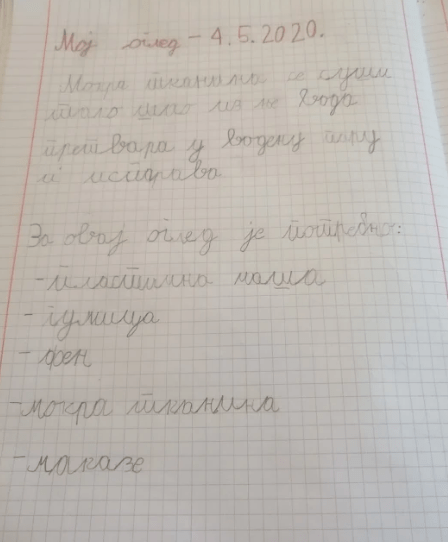 Мој оглед - 4.5.2020.
Мокра тканина се суши
тако што из ње вода
претвара у водену пару
и испарава
За овај оглед је потребно:
-пластична маша
-гумица
-фен
-мокра тканина
-маказе